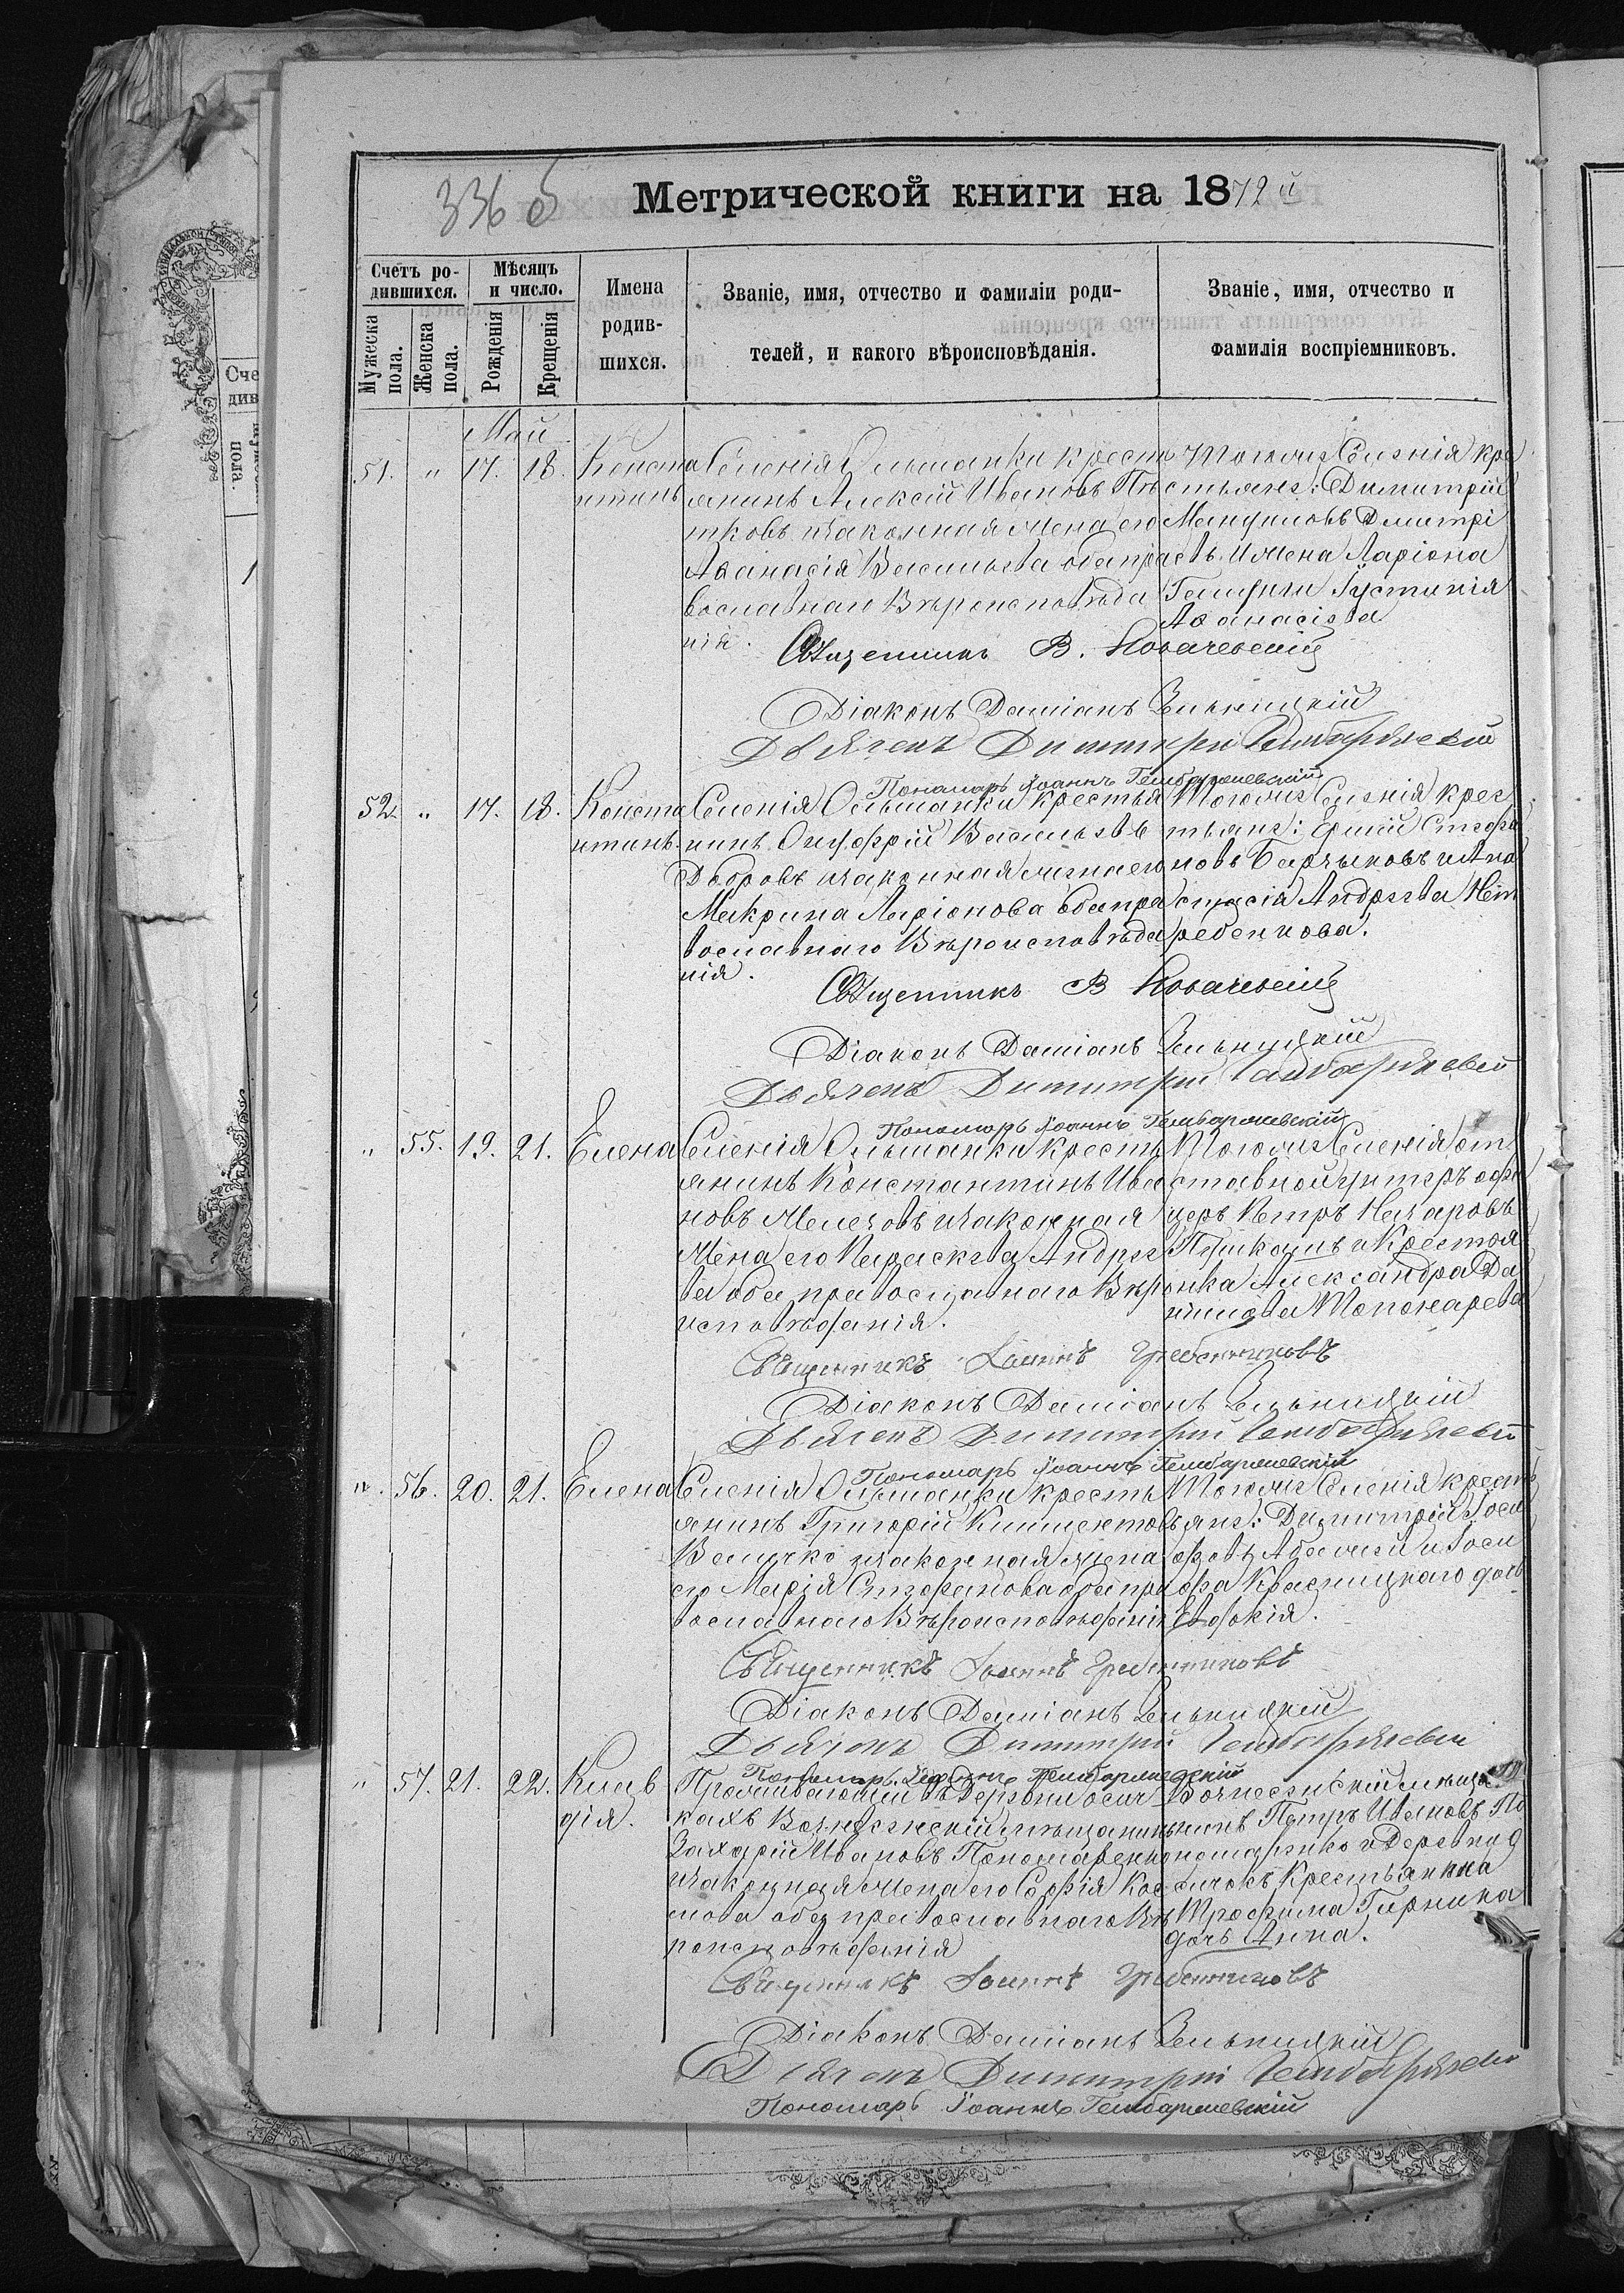 336 об
Метрической книги на 1872й
Счетъ ро-
дившихся.
Мѣсяцъ
и число.
Мужеска
пола.
Женска
пола.
Рожденія
Крещенія
Имена
родив-
шихся.
Званіе, имя, отчество и фамиліи роди-
телей, и какого вѣроисповѣданія.
Званіе, имя, отчество и
фамилія воспріемниковъ.
Май
51. " 17. 18. Конста
нтинъ
Селенія Ольшанки крест
янинъ Алексій Ивановъ
тковъ изаконная жена его
Афанасія Васильева оба пра
вославнаго Вѣроисповѣда
нія.
Тогоже Селенія кре
стьяне: Димитрій
Дмитрі
евъ и жена Ларіона
Іустинія
Афанасіева
Священникъ В. Ковачевскій
Діаконъ Даміанъ Зелькицкій
Дьячекъ Димитрій Гембаржевскій
Пономарь Іоаннъ Гембаржевскій
52. " 17. 18. Конста
нтинъ.
Селенія Ольшанки Крестья
нинъ Онуфрій Васильевъ
Добровъ изаконная жена его
Макрина Ларіонова оба пра
вославнаго Вѣроисповѣда
нія.
Тогоже Селенія крес
тьяне:
новъ иАна
стасія Андреева
ребенкова.
Священникъ В Ковачевскій
Діаконъ Даміанъ Зелькицкій
Дьячекъ Димитрій Гембаржевскій
Пономарь Іоаннъ Гембаржевскій
" 55. 19. 21. Елена
Селенія Ольшанки кресть
янинъ Константинъ Ива
новъ изаконная
жена его Параскева Андрее
ва оба православнаго Вѣро
исповѣданія.
Тогоже Селенія от
ставной унтеръ офи
церъ Петръ Назаровъ
иКрестья
нка Александра Да
нилова
Священникъ Іоаннъ Гребенниковъ
Діаконъ Даміанъ Зелькицкій
Дьячекъ Димитрій Гембаржевскій
Пономарь Іоаннъ Гембаржевскій
". 56. 20. 21. Елена
Селенія Ольшанки кресть
янинъ Григорій Климентовъ
Величко изаконная жена
его Марія Стефанова оба пра
вославнаго Вѣроисповѣданія
Тогоже Селенія крест
яне: Димитрій Іоси
фовъ иІоси
фа Красницкаго дочь
Евфокія.
Священникъ Іоаннъ Гребенниковъ
Діаконъ Даміанъ Зелькицкій
Дьячекъ Димитрій Гембаржевскій
Пономарь Іоаннъ Гембаржевскій
" 57. 21. 22. Клав
дія.
Проживающій въ Деревни осич
кахъ Вознесенскій мѣщанинъ
Захарій Ивановъ Пономаренко
изаконная жена его Софія Кос
мова оба православнаго Вѣ
роисповѣданія
Вознесенскій мѣща
нинъ Петръ Ивановъ По
номаренко и Деревни О
сичокъ Крестьянина
Трофима Гирника
дочь Анна.
Священникъ Іоаннъ Гребенниковъ
Діаконъ Даміанъ Зелькицкій
Дьячекъ Димитрій Гембаржевскій
Пономарь Іоаннъ Гембаржевскій